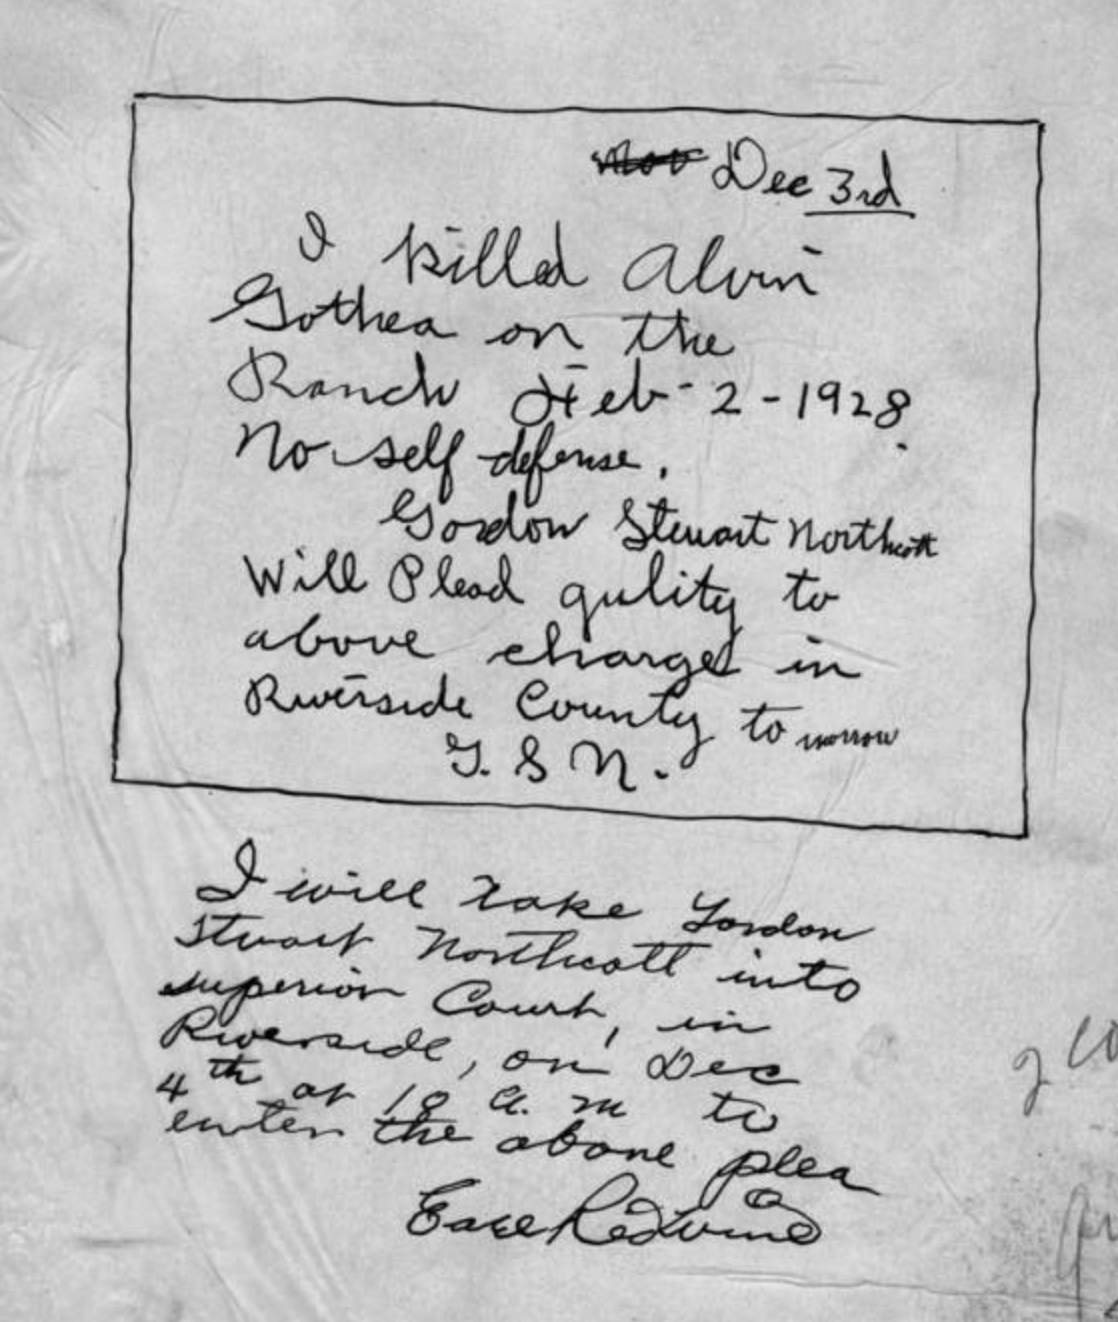 Dec 3rd
I killed Alvin
Gothea on the
Ranch Feb-2-1928.
No self defense.
Gordon Stewart Northcott
Will Plead gulity to
above charge in
Riverside County to morrow
G. S N.
I will take Gordon
Stuart Northcott into
superior Court, in
Riverside, on Dec
4th at 10 a. m to
enter the above plea
Earl Redwine